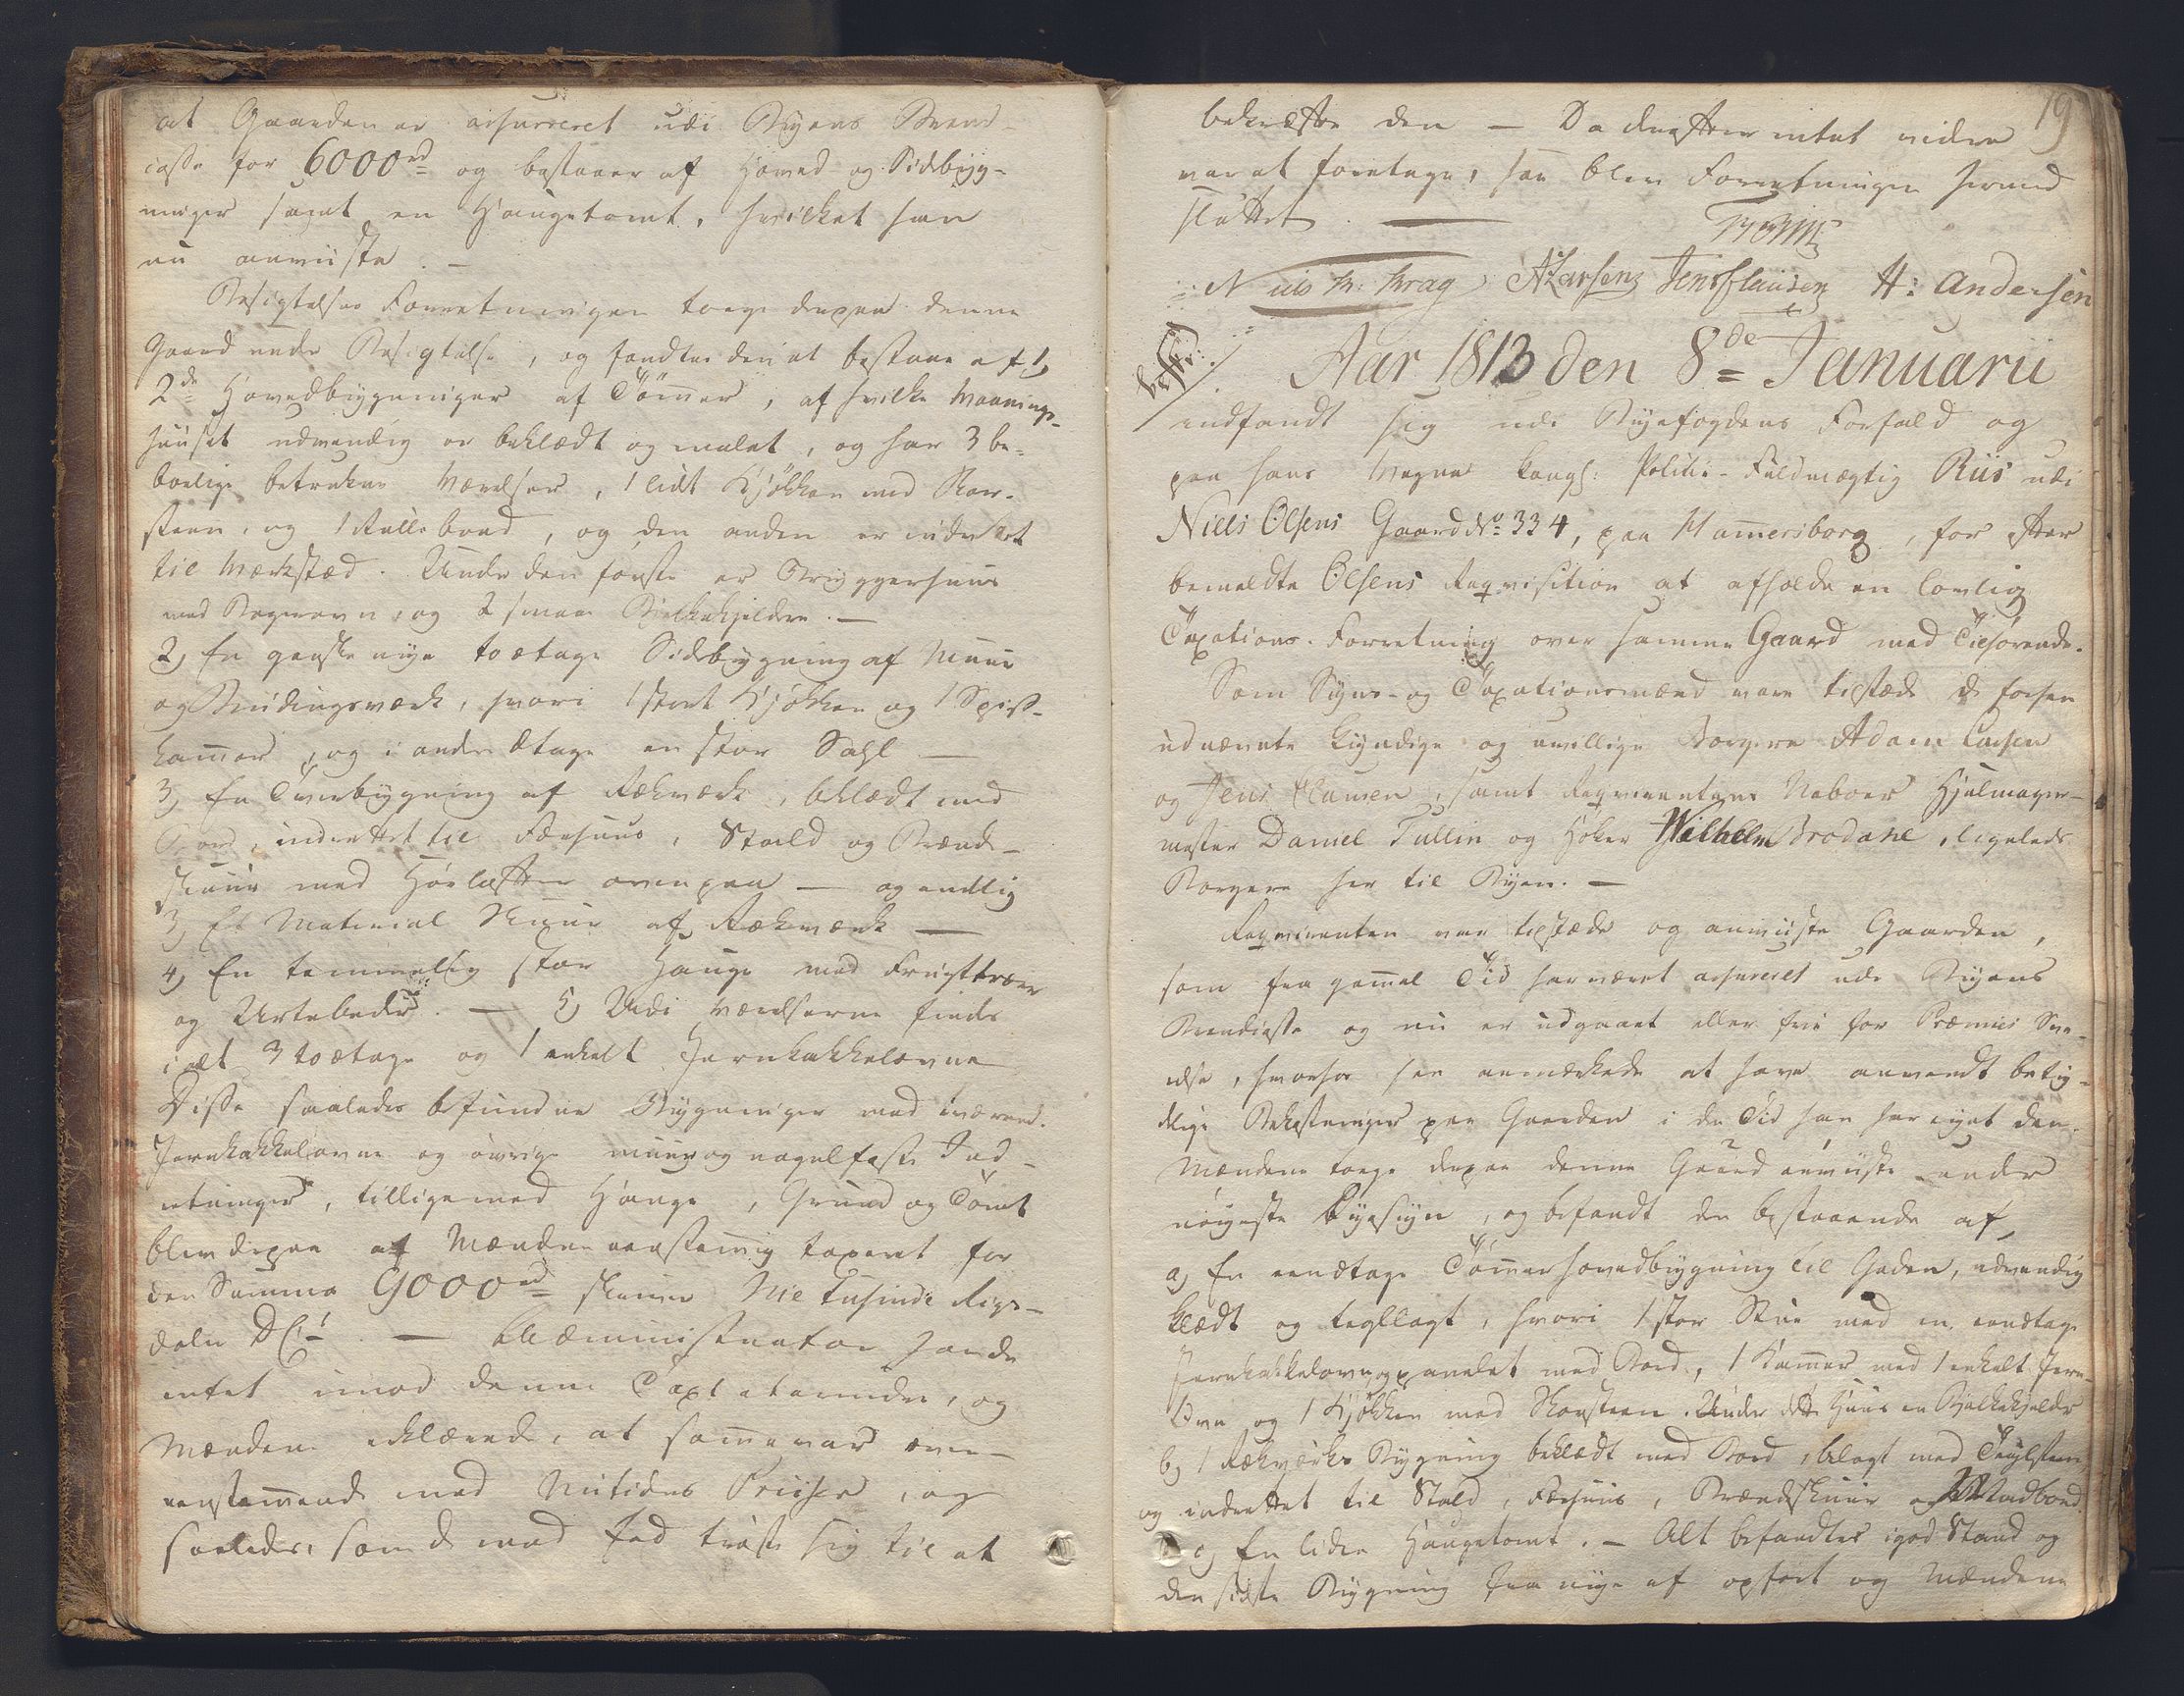 at Gaarden er assurreret udi Byens Brand-
casse for 6000 rd og bestaaer af Hoved og Sidebyg-
ninger samt en Haugetomt, hvilket han
nu anviiste. —
Besigtelses Forretningen toeg derpaa denne
Gaard under Besigtelse, og fandtes den at bestaae af 1)
2de Hovedbygninger af Tömmer, af hvilke Vaanings-
huuset udvendig er beklædt og malet, og har 3 be-
boelige betrukne Værelser, 1 lidt Kjökken med Skor-
steen, og 1 Rullebod, og den anden er indrettet
til Værksted. Under den første er Bryggerhuus
med Bagerovn, og 2 smaae Bielkekieldere. —
2) En ganske nye toetages Sidebygning af Muur
og Bindingsværk, hvori 1 stort Kjökken og 1 Spiis-
kammer, og i anden Etage en stor Sahl —
3) En Tverbygning af Rækværk, beklædt med
Bord, indrettet til Fæehuus, Stald og Brænde-
skuur med Höeloftter ovenpaa — og endlig
3) Et Material Skuur af Rækværk —
4) En temmelig stor Hauge med Frugttræer
og Urtebedder. — 5) Udi Værelserne findes
i alt 3 toetages og 1 enkelt Jernkakkelovne
Disse saaledes befundne Bygninger med værende
Jernkakkelovne og övrige muur og nagelfaste Ind-
retninger, tilligemed Hauge, Grund og Tomt
blev derpaa af Mændene eenstemmig taxeret for
den Summa 9000 rd skriver Nie Tusinde Rigs-
daler DCt. — Administrator havde
intet imod denne Taxt at erindre, og
Mændene erklærede, at samme var over-
eensstemmende med Nutidens Priiser, og
saaledes som de med Eed tröste sig til at

19
bekræfte den — Da derefter intet videre
var at foretage, saa blev Forretningen hermed
sluttet. —
Niels Kr. Krag ALarsen Jens Clausen H: Andersen
Aar 1813 den 8de Januarii
indfandt sig udi Byefogdens Forfald og
paa hans Vegne kongl: Politie-Fuldmægtig Riis udi
Niels Olsens Gaard No 334, paa Hamersborg, for efter
bemeldte Olsens Reqvisition at afholde en lovlig
Taxations-Forretning over samme Gaard med Tilhörende.
Som Syns- og Taxationsmænd vare tilstæde de forhen
udnævnte kyndige og uvillige Borgere Adam Larsen
og Jens Clausen, samt Reqvirentens Naboer Hjulmager-
mester Daniel Tullin og Höker Wilhelm Brodahl, ligeleds
Borgere her til Byen. —
Reqvirenten var tilstæde og anviiste Gaarden,
som fra gammel Tid har været assureret udi Byens
Brandcasse og nu er udgaaet eller frie for Præmies Sva-
relse, hvorhos han anmærkede at have anvendt bety-
delige Bekostninger paa Gaarden i den Tid han har eyet den.
Mændene toege derpaa denne Gaard anviiste under
nöyeste Öyesyn, og befandt den bestaaende af,
a) En eenetages Tömmerhovedbygning til Gaden, udvendig
klædt og tegllagt, hvori 1 stor Stue med en eenetages
Jernkakkelovn og panelet med Bord, 1 Kammer med 1 enkelt Jern-
Ovn og 1 Kjökken med Skorsteen. Under dette Huus en Bjelkekjelder
b) 1 Rækværks Bygning beklædt med Bord, belagt med Teiglsteen
og indrettet til Stald, Fæehuus, Brændeskuur og Madbod
c) En liden Haugetomt. — Alt befandtes i god Stand og
den sidste Bygning fra nye af opfört og Mændene